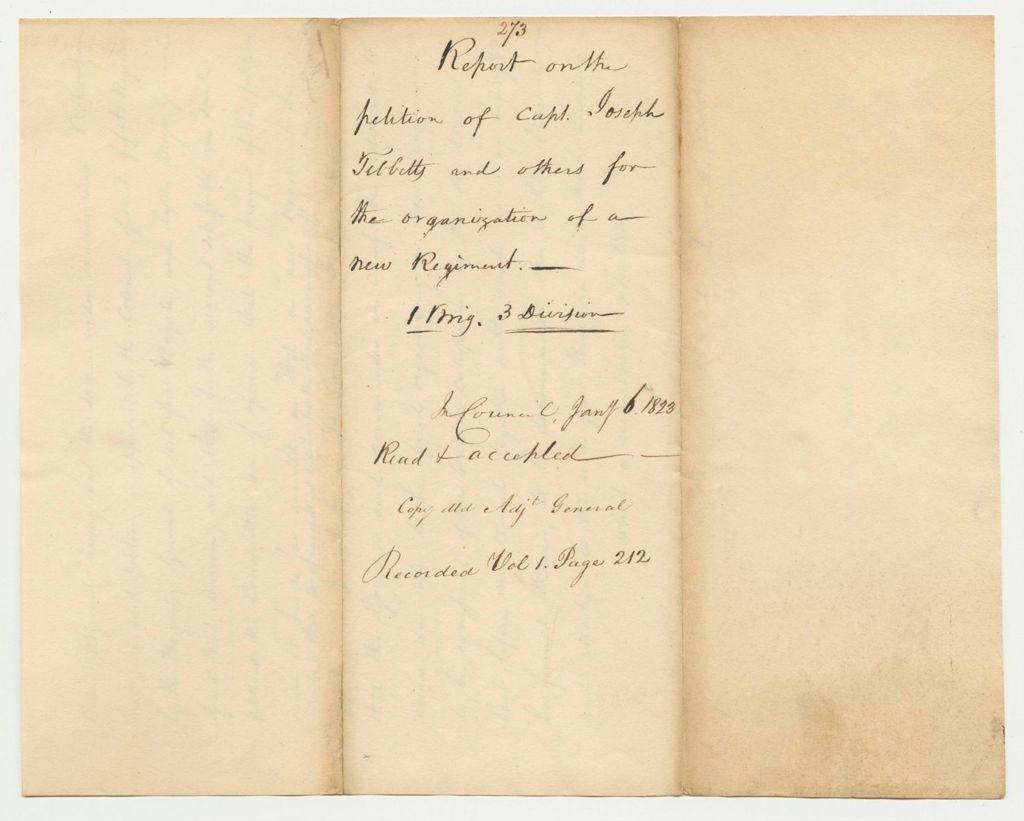 273
Report on the
petition of Capt. Joseph
Tibbetts and others for
the organization of a
new Regiment. —
1 Brig. 3 Division
In Council, Jany 6. 1823
Read & accepted —
Copy dld Adjt General
Recorded Vol 1. Page 212